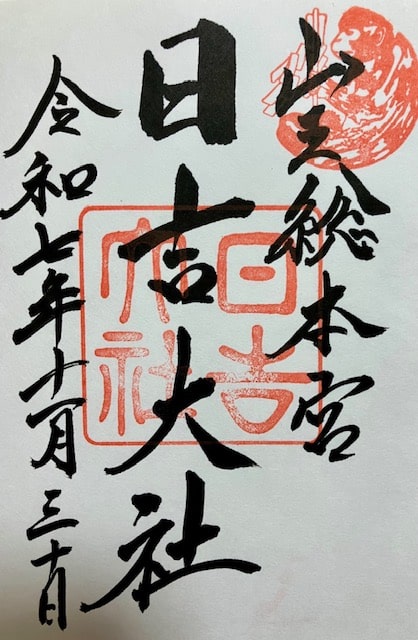 山王総本宮
日吉大社
令和七年十一月三十日
日吉
大社